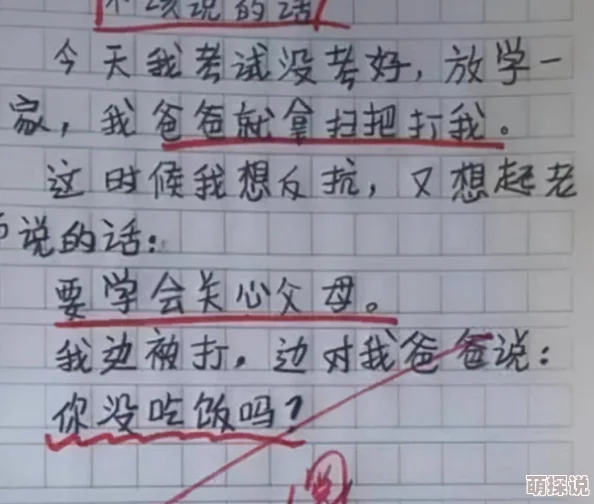 不该说的话
今天我考试没考好，放学一
家，我爸爸就拿扫把打我。
这时候我想反抗，又想起老
师说的话：
要学会关心父母。
我边被打，边对我爸爸说：
你没吃饭吗？
萌探说